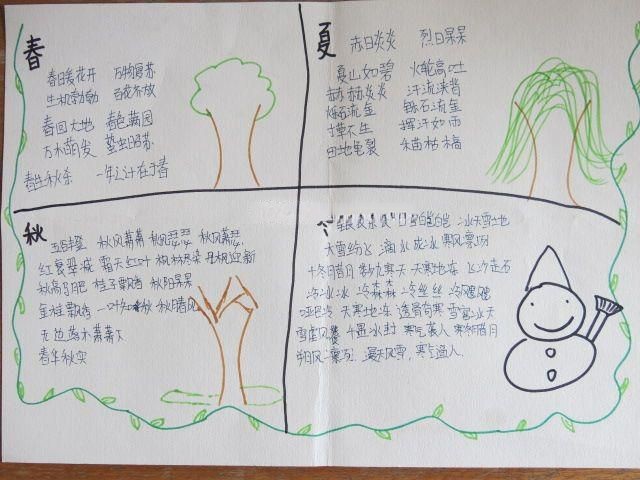 春
春日暖花开 万物复苏
生机勃勃 百花齐放
春回大地 春色满园
万木萌发 蛰虫昭苏
春生秋杀 一年之计在于春
夏 赤日炎炎 烈日杲杲
夏山如碧 火轮高吐
赫赫炎炎 汗流浃背
烁石流金 铄石流金
寸草不生 挥汗如雨
田地龟裂
秋
五谷丰登 秋风萧萧 秋风瑟瑟 秋风萧瑟
红衰翠减 霜天红叶
秋高马肥 桂子飘香 秋阳杲杲
金桂飘香 一叶知秋
无边落木萧萧下
春华秋实
冰天雪地
大雪纷飞 滴水成冰 寒风凛冽
十冬腊月 数九寒天 天寒地冻 飞沙走石
冷冰冰 冷森森 冷丝丝 冷飕飕
天寒地冻 透骨奇寒 雪窖冰天
千里冰封 寒气袭人 寒冬腊月
朔风凛冽 漫天风雪 寒气逼人